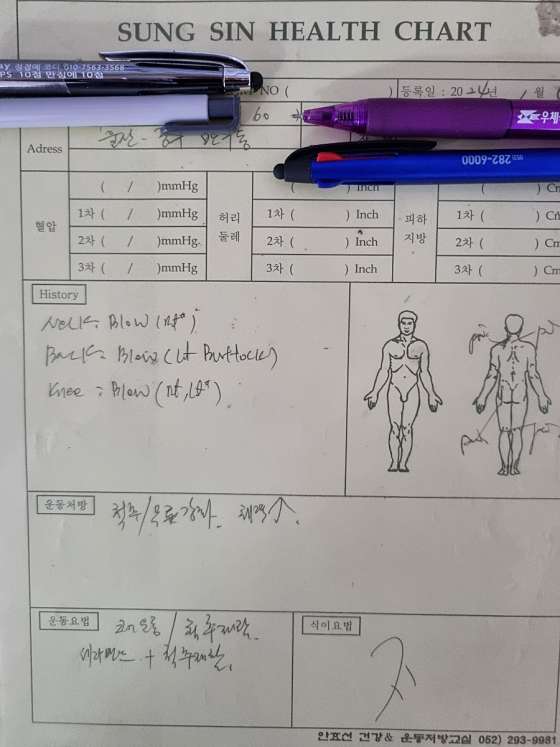 SUNG SIN HEALTH CHART
정경에 코디 010-7563-3568
PS 10점 만심에 10점
NO ( ) 등록일 : 2024년 / 월
60
Adress 울산 - 중구
282-6000
혈압 ( / )mmHg ( ) Inch ( ) Cm
1차 ( / )mmHg 허리 둘레 1차 ( ) Inch 피하 지방 1차 ( ) Cm
2차 ( / )mmHg 2차 ( ) Inch 2차 ( ) Cm
3차 ( / )mmHg 3차 ( ) Inch 3차 ( ) Cm
History
Neck : Blow (rt*)
Back : Blow (Lt Buttock)
Knee : Blow (rt, Lt*)
pain
운동처방 척추/근육강화. 체력↑.
운동요법 코어운동 / 척추재활.
필라테스 + 척추재활.
식이요법
안효선 건강& 운동처방교실 052) 293-9981